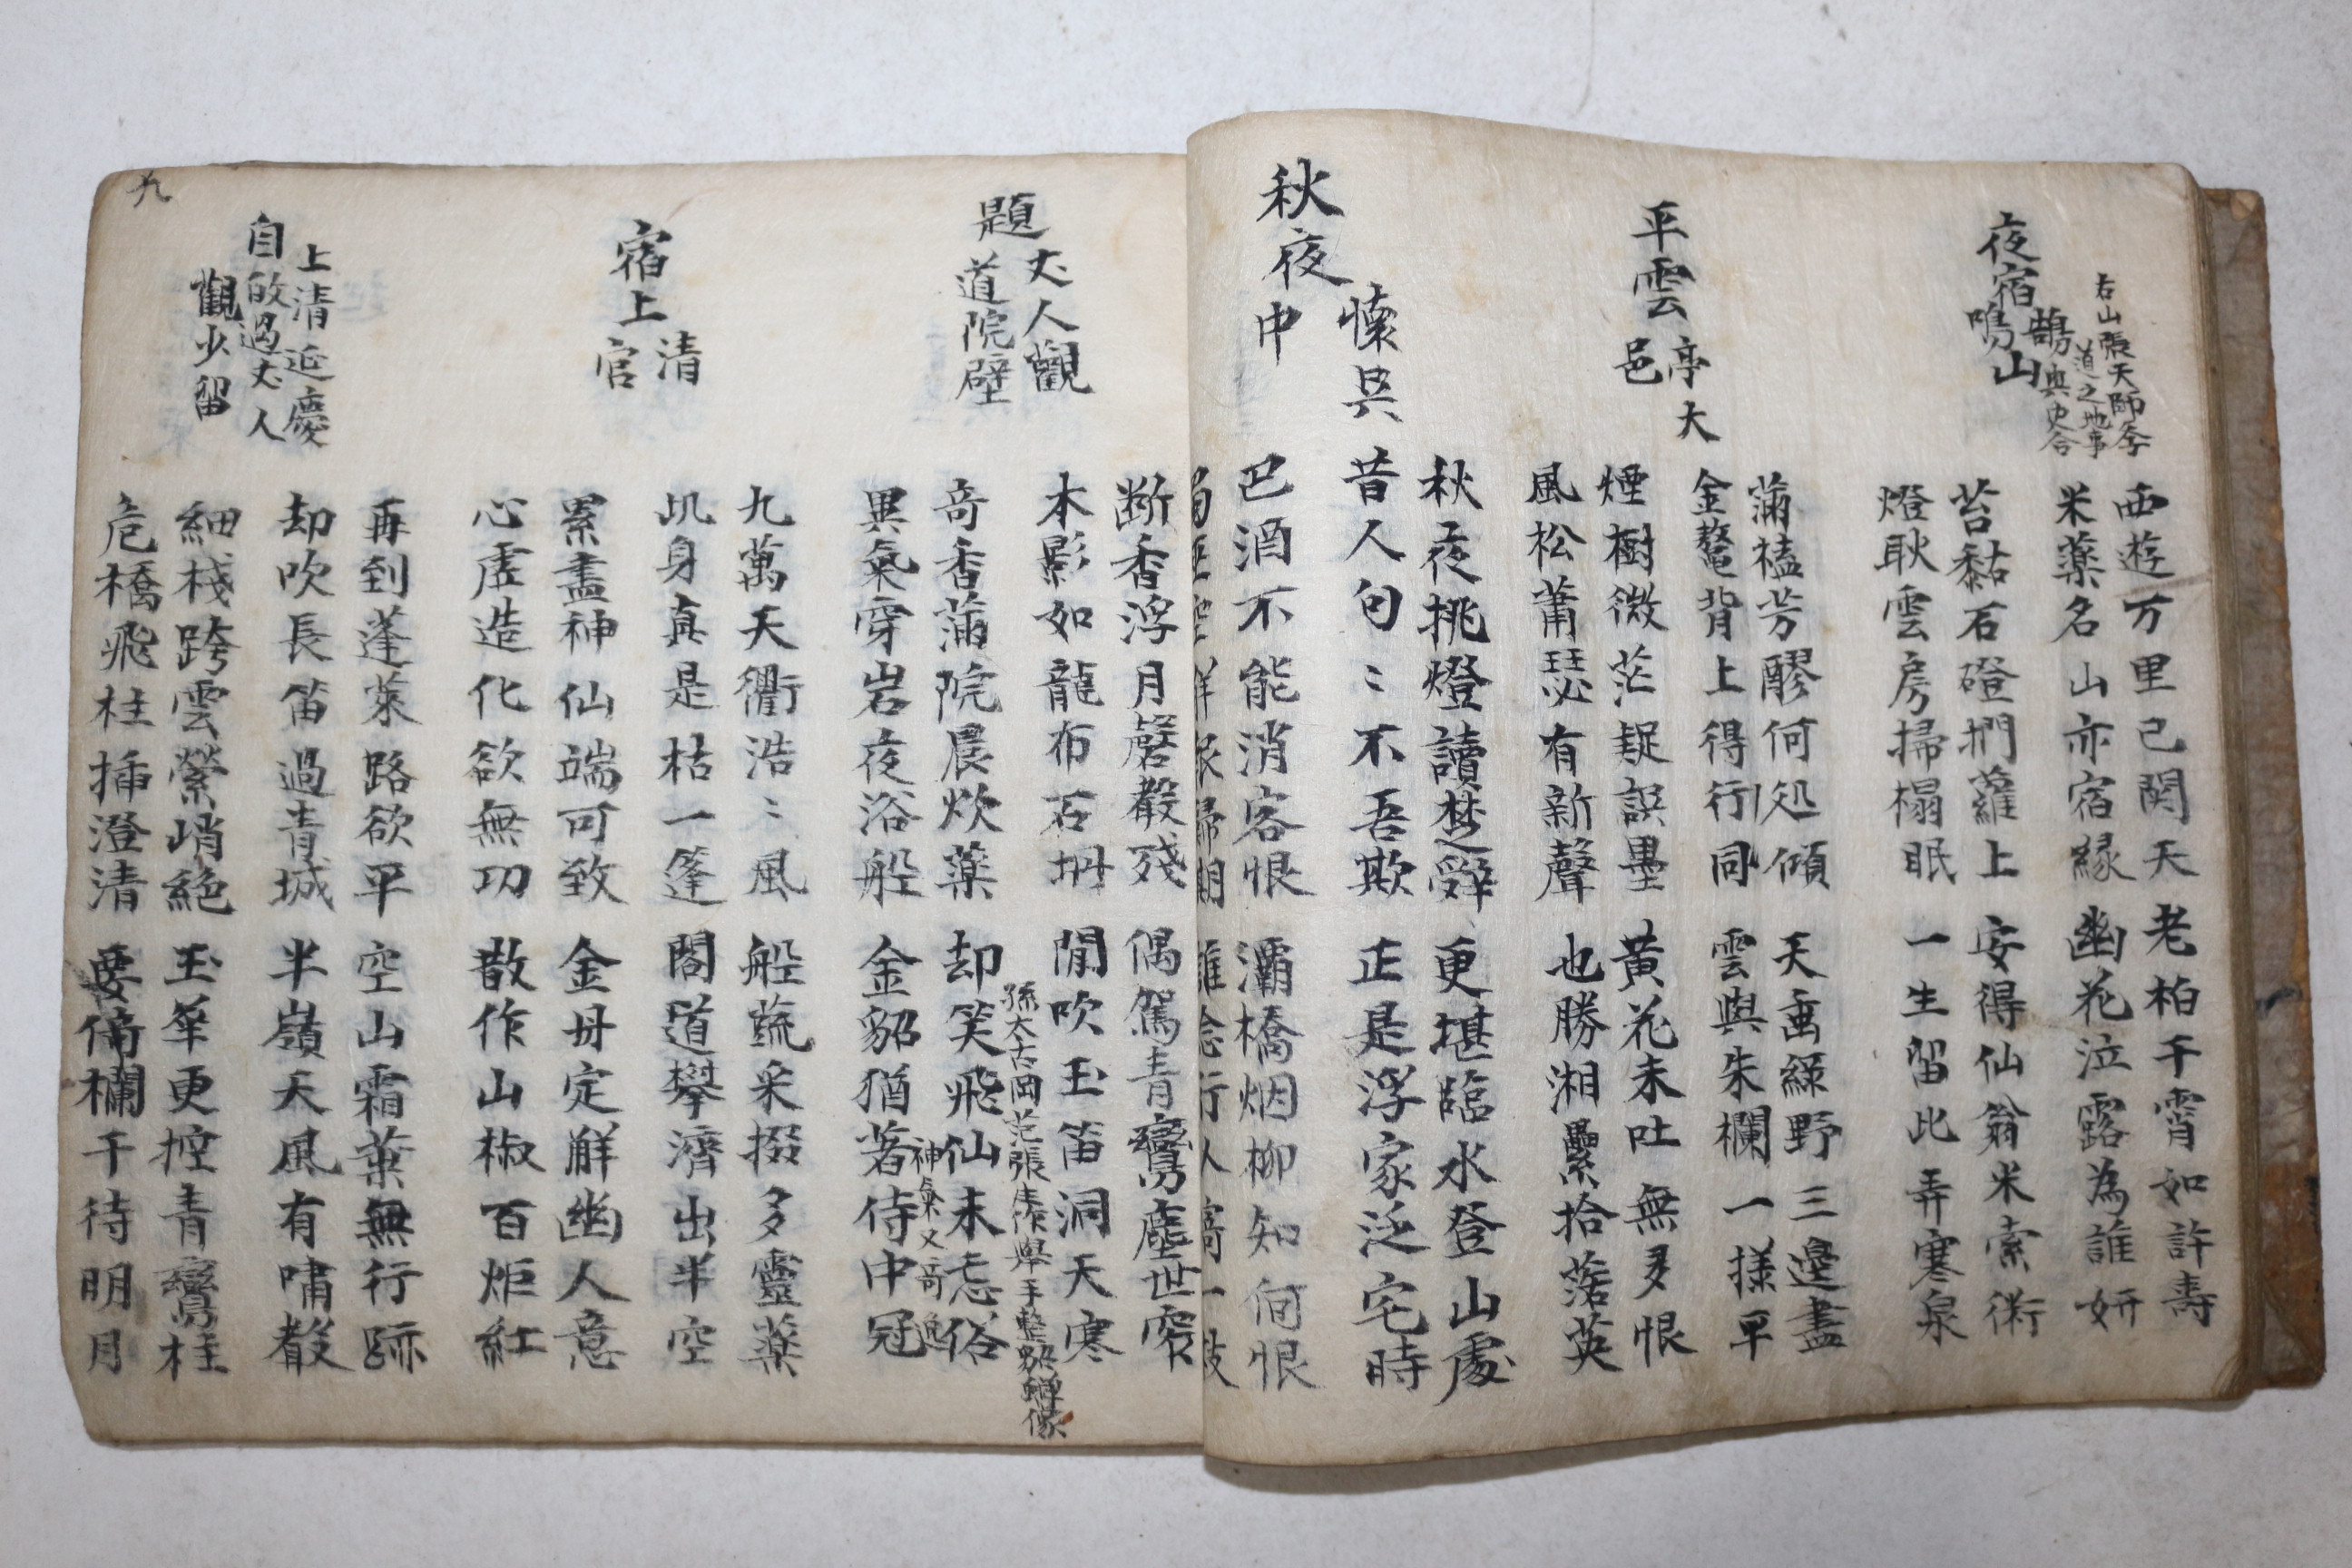 夜宿鵠鳴山
右山張天師
道之地事
與史合
西遊万里已関天 老柏千霄如許壽
米薬名山亦宿縁 幽花泣露為誰妍
苔黏石磴捫蘿上 安得仙翁米索術
燈耿雲房掃榻眠 一生留此弄寒泉
平雲亭大邑
蒲𣖔芳醪何処傾 天垂綠野三邊盡
金鼇背上得行同 雲與朱欄一様平
煙樹微茫疑誤墨 黃花未吐無多恨
風松蕭瑟有新聲 也勝湘纍拾落英
秋夜懷吳中
秋夜挑燈讀楚辝 更堪臨水登山處
昔人句〻不吾欺 正是浮家泛宅時
巴酒不能消客恨 灞橋烟柳知何恨
行人寄一
題丈人觀道院壁
断香浮月磬聲殘 偶駕青鸞塵世窄
木影如龍布石坍 閒吹玉笛洞天寒
奇香蒲院晨炊薬 却笑飛仙未忘俗
異氣穿岩夜浴船 金貂猶著侍中冠
孫太古畫張 舉手整貂蟬像
神氣又奇逸
宿上清宮
九萬天衢浩〻風 船蔬采掇多靈薬
圦身真是枯一篷 閣道攀濟出半空
累盡神仙端可致 金丹定解幽人意
心虛造化欲無功 散作山椒百炬紅
上清延慶
自啟過丈人
觀少留
再到蓬萊路欲平 空山霜葉無行跡
却吹長笛過青城 半嶺天風有嘯聲
細棧跨雲縈峭絕 玉華更控青鸞柱
危橋飛柱插澄清 要倚欄干待明月
九